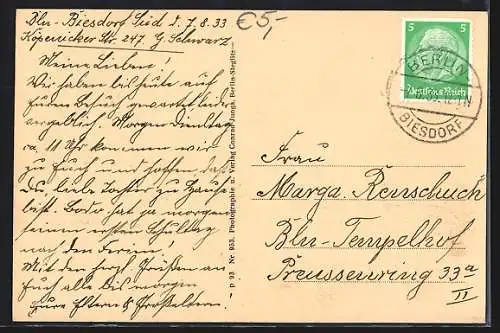 Bln-Biesdorf Süd d. 7.8.33
Köpenicker Str. 247. G Schwarz
€5,-
Meine Lieben!
Wir haben bis heute auf
Euren Besuch gewartet, leider
vergeblich. Morgen Dienstag
ca. 11 Uhr kommen wir
zu Euch und hoffen, daß
Du liebe Tochter zu Hause
bist. Bodo hat ja morgen
seinen ersten Schultag
nach den Ferien!
Mit den herzl. Grüßen an
Euch alle bis morgen
Eure Eltern & Großeltern.
p 93 Nr. 953. Photographie u. Verlag Conrad Junga, Berlin-Steglitz
5 5
Deutsches Reich
BERLIN
BIESDORF
Frau
Marga. Renschuch
Bln-Tempelhof
Preussenring 33a
II